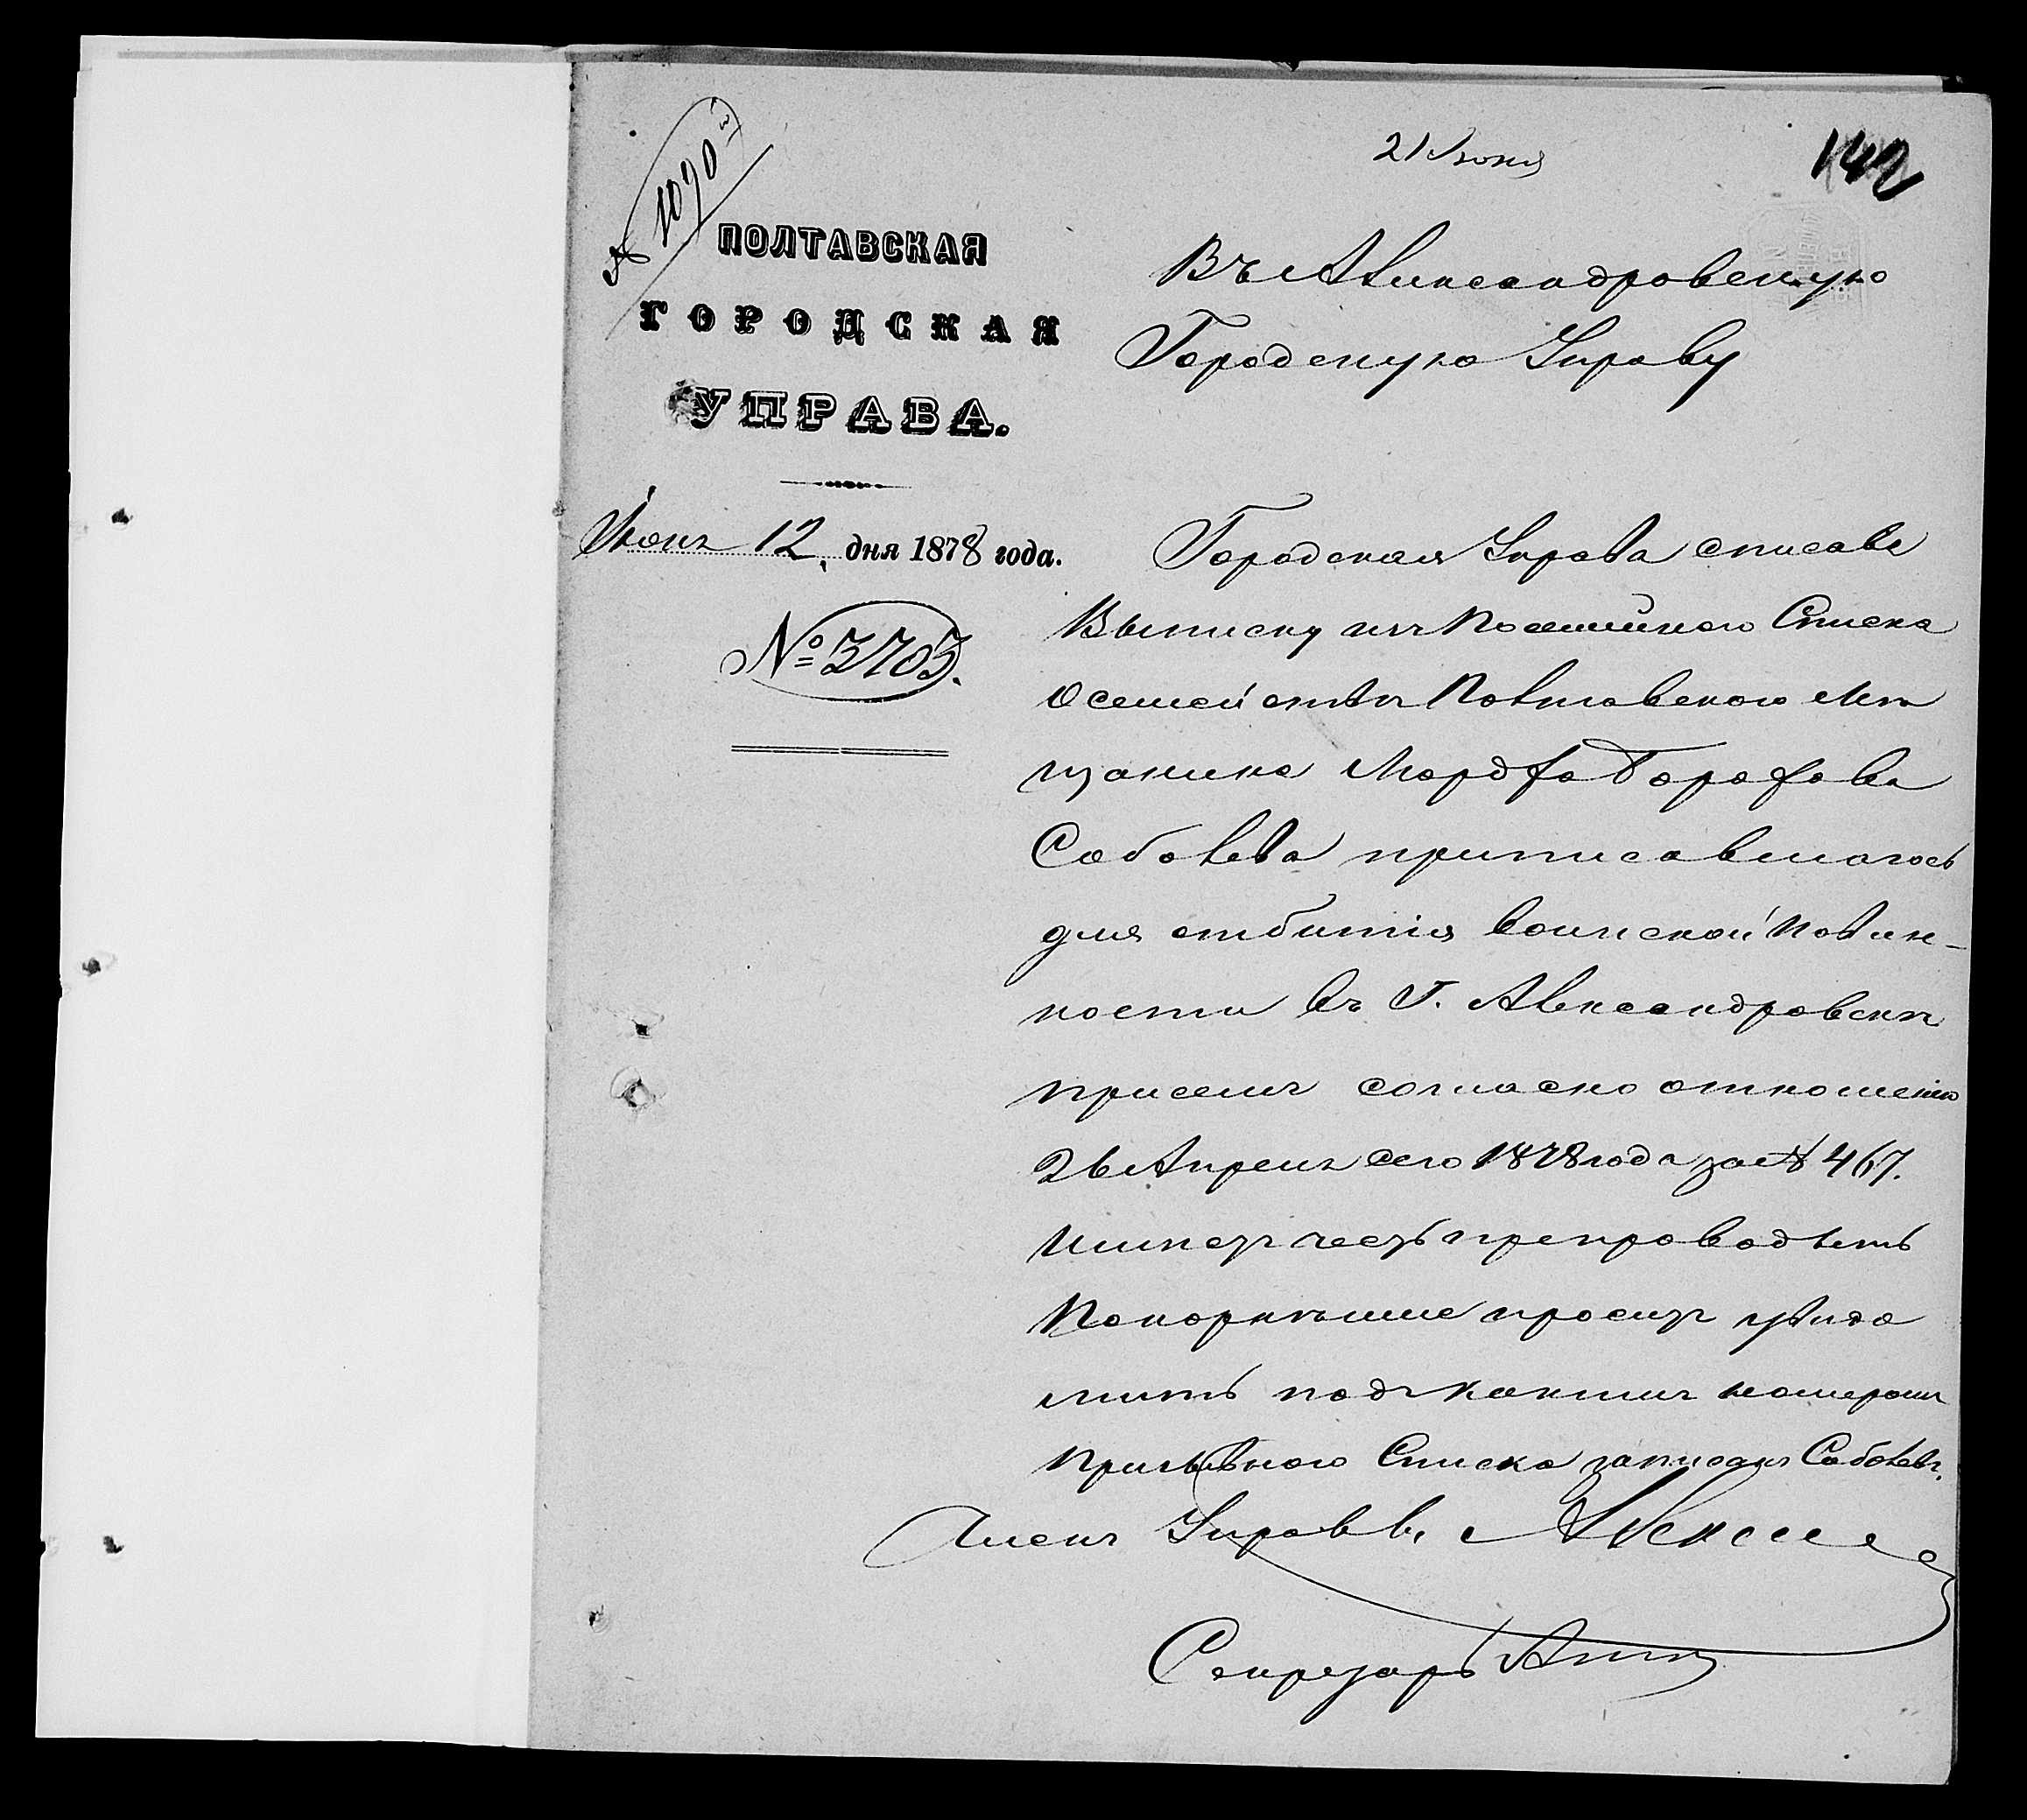 21 Июня
142
№ 1090й
ПОЛТАВСКАЯ
ГОРОДСКАЯ
УПРАВА.
Июня 12 дня 1878 года.
№ 3703.
Въ Александровскую
Городскую Управу
Городская Управа списавъ
Выписку изъ Посемейнаго Списка
О семействѣ Полтавскаго Мѣ
щанина Мордха Борохова
Соболева приписавшагось
для отбитія воинской Повин-
ности въ Г. Александровскѣ
присемъ согласно отношенію
26 Апреля сего 1878 года за № 467.
Имѣетъ честь препроводить
Покорнѣйше проситъ увѣдо
мить подъ какимъ номеромъ
Призывного Списка записанъ Соболевъ.
Членъ Управы
Секретарь